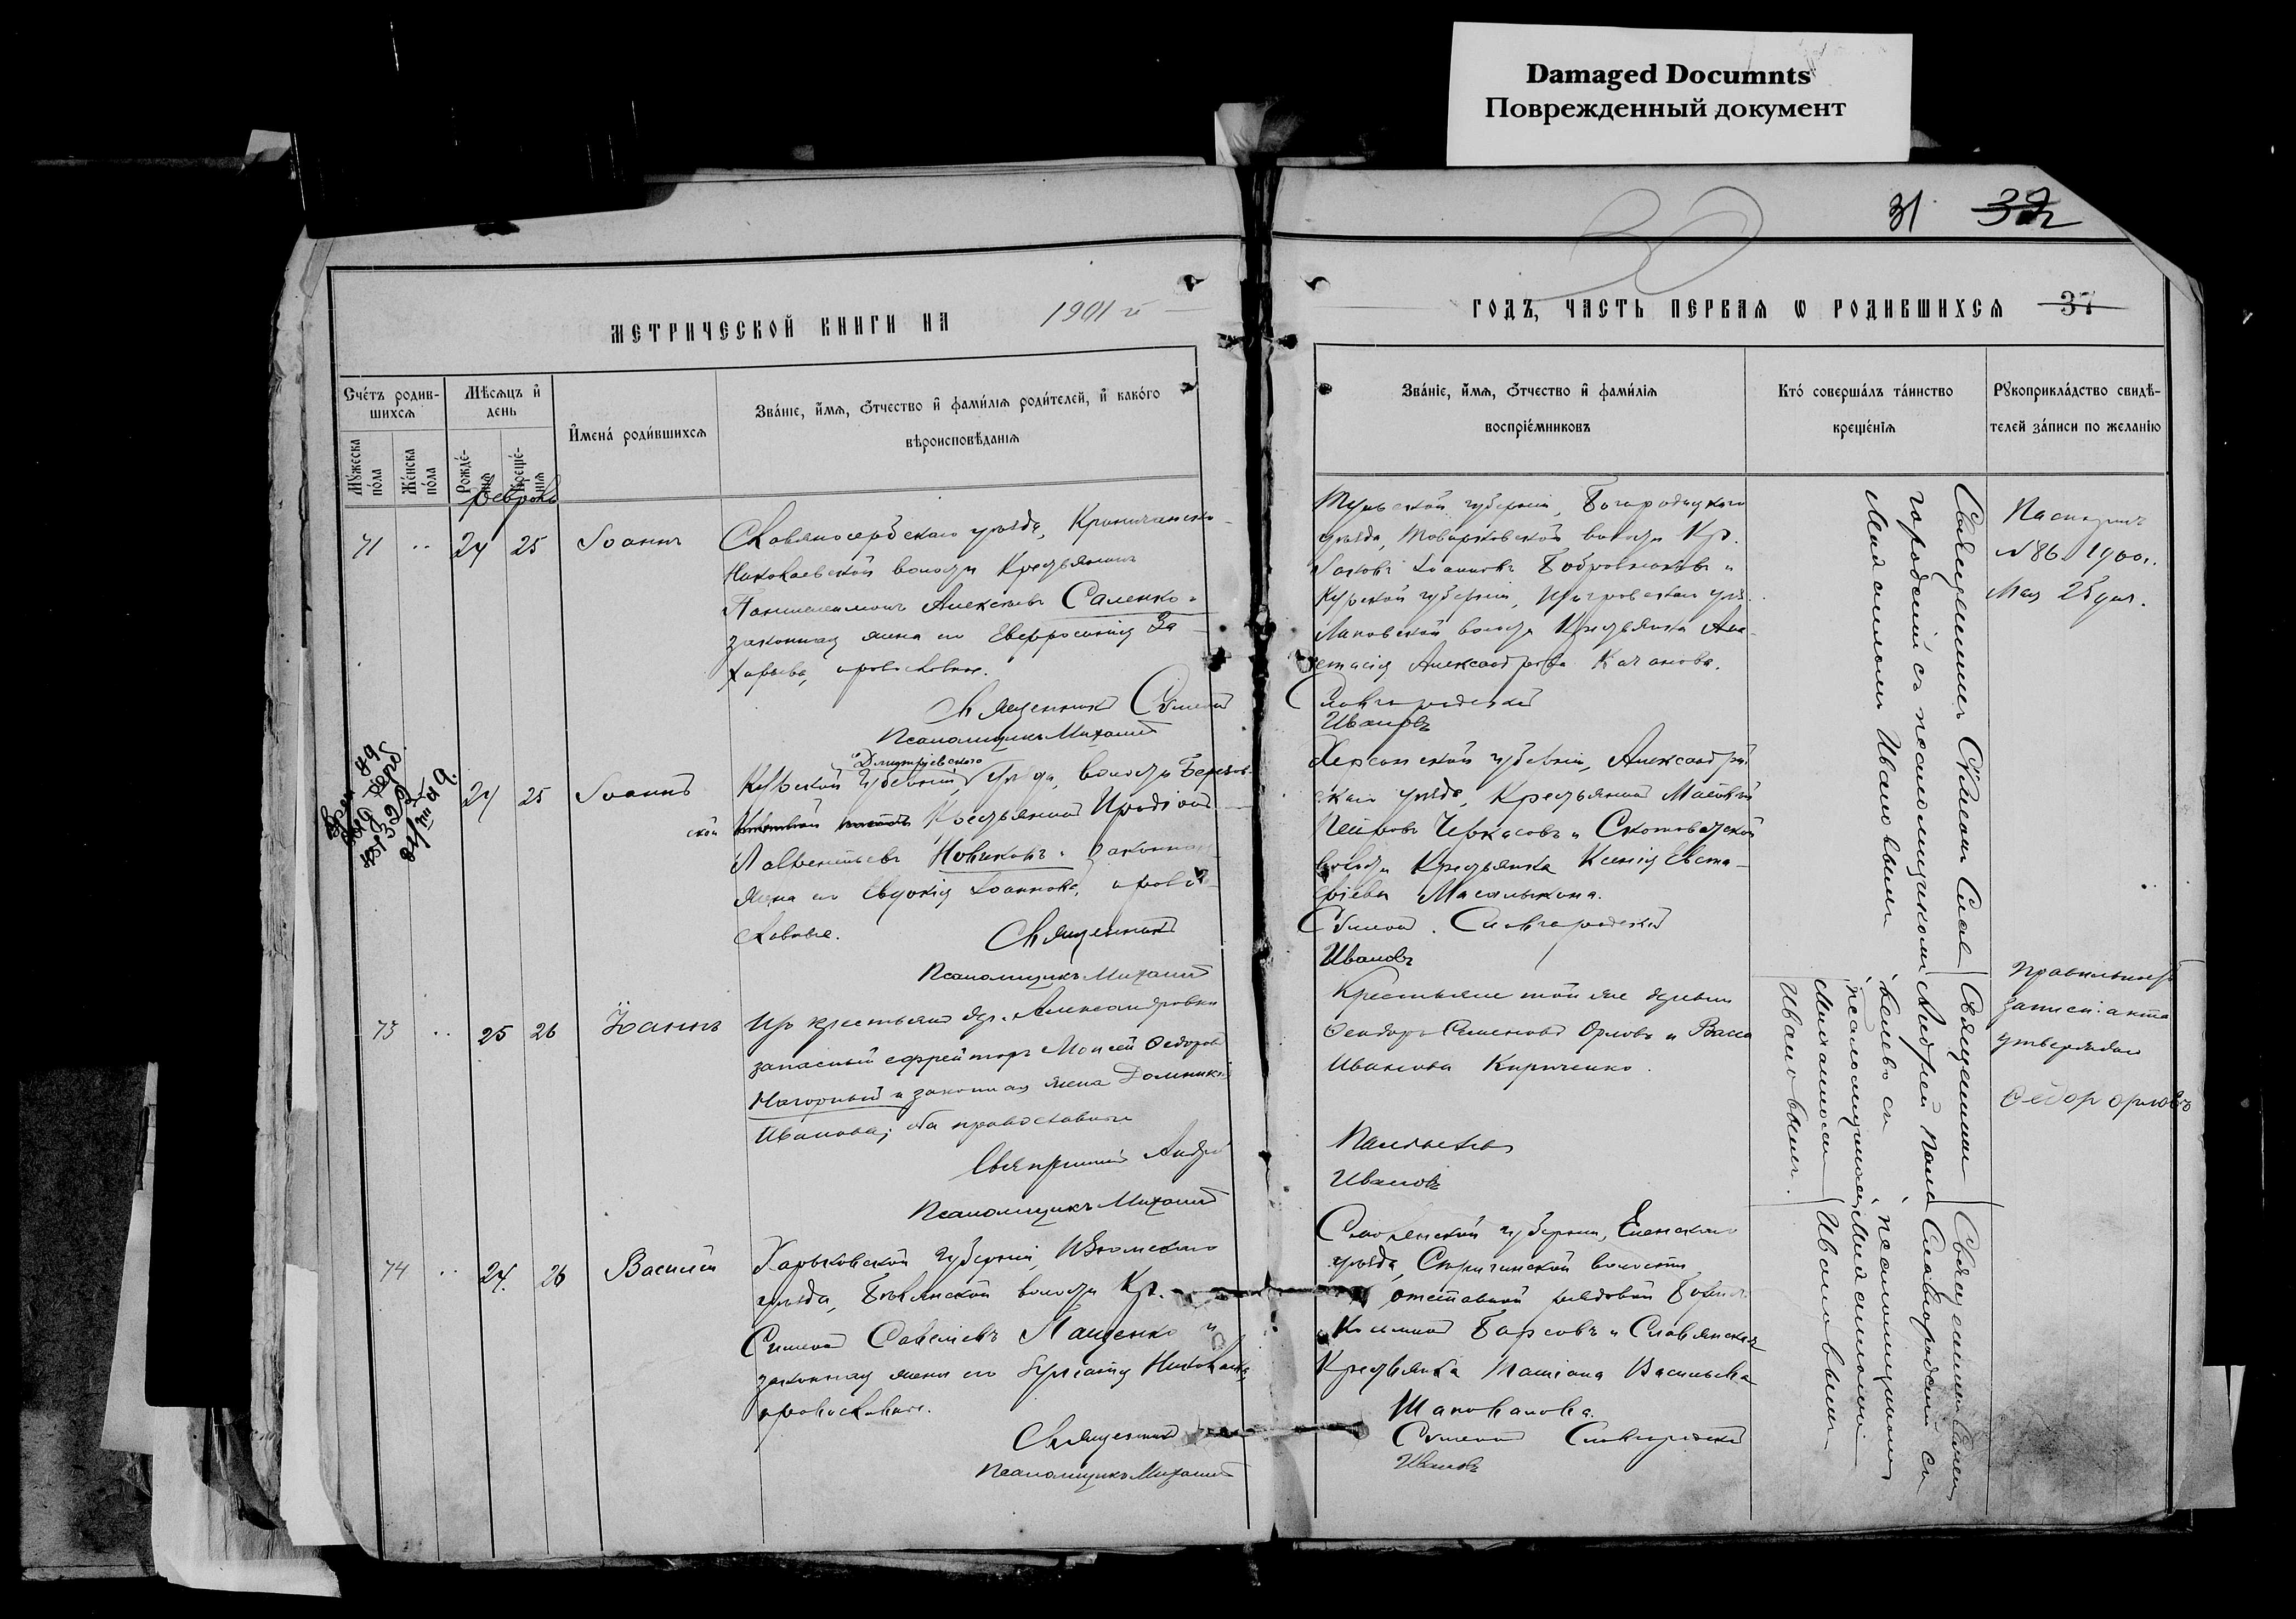 Damaged Documnts
Поврежденный документ
31 32
30
МЕТРИЧЕСКОЙ КНИГИ НА 1901 й
ГОДЪ, ЧАСТЬ ПЕРВАЯ Ѡ РОДИВШИХСЯ 37
Счетъ родив-
шихся
Мужеска
пола
Женска
пола
Мѣсяцъ и
день
Рожде-
нія
Креще-
нія
Имена родившихся
Званіе, имя, отчество и фамилія родителей, и какого
вѣроисповѣданія
Званіе, имя, отчество и фамилія
воспріемниковъ
Кто совершалъ таинство
крещенія
Рукоприкладство свидѣ-
телей записи по желанію
Февраль
71 .. 24 25 Іоаннъ
Славяносербскаго уѣзда,
Николаевской волости Крестьянинъ
Пантелеимонъ Алексѣевъ Саленко и
законная жена его Евфросинія За-
харьева, православные.
Священникъ Симеонъ
Псаломщикъ Михаилъ
Тульской губерніи, Богородицкаго
уѣзда, Товарковской волости Кр.
Іаковъ Іоанновъ Бобровниковъ и
Курской губерніи, Щигровскаго уѣз.
Липовской волости Крестьянка Ана-
стасія Александрова Качанова.
Славгородскій
Ивановъ
Священникъ Симеонъ Слав-
городскій съ псаломщикомъ
Михаиломъ Ивановымъ
Паспортъ
№ 86 1900 г.
Мая 25 дня.
24 25 Іоаннъ
Дмитріевскаго
Курской губерніи, уѣзда, волости Березов-
ской Крестьянинъ Иродіонъ
Лаврентьевъ Новиковъ и законная
жена его Евдокія Іоаннова, право-
славные.
Священникъ
Псаломщикъ Михаилъ
Херсонской губерніи, Александрій-
скаго уѣзда, Крестьянинъ Матвѣй
Петровъ Черкасовъ и Скотоватской
волости Крестьянка Ксенія Евста-
фіева Масалыкина.
Симеонъ Славгородскій
Ивановъ
73 .. 25 26 Іоаннъ
Изъ крестьянъ дер. Александровки
запасный ефрейторъ Моисей Ѳедоровъ
Нагорный и законная жена Домникія
Иванова; оба православные
Священникъ Андрей
Псаломщикъ Михаилъ
Крестьяне той же деревни
Ѳеодоръ Семеновъ Орловъ и Васса
Иванова Кириченко.
Ивановъ
Священникъ
Андрей
съ
псаломщикомъ
Михаиломъ
Ивановымъ.
Правильность
записи акта
утверждаю
Ѳедоръ Орловъ
74 .. 24 26 Василій
Харьковской губерніи, Изюмскаго
уѣзда, волости Кр.
Симеонъ Савельевъ Лащенко и
законная жена его Іуліанія Николаева
православные.
Священникъ
Псаломщикъ Михаилъ
Смоленской губерніи, Ельнскаго
уѣзда, волости
отставной рядовой
Барсовъ и Славянская
Крестьянка Татіана Васильева
Шаповалова.
Симеонъ Славгородскій
Ивановъ
Священникъ Симеонъ
Славгородскій съ
псаломщикомъ
Михаиломъ
Ивановымъ